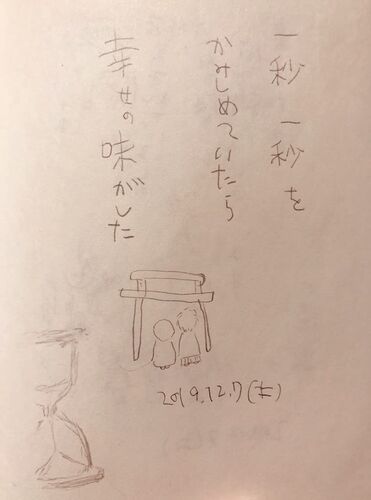 一秒一秒を
かみしめていたら
幸せの味がした
2019.12.7(土)